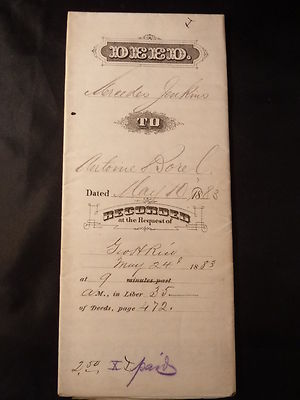 DEED.
Mercedes Jenkins
TO
Antonie Dore C.
Dated May 10, 1883
RECORDED
at the Request of
Geo H Rice
May 24, 1883
at 9 minutes past
A M., in Liber 35
of Deeds, page 472.
2.50 paid